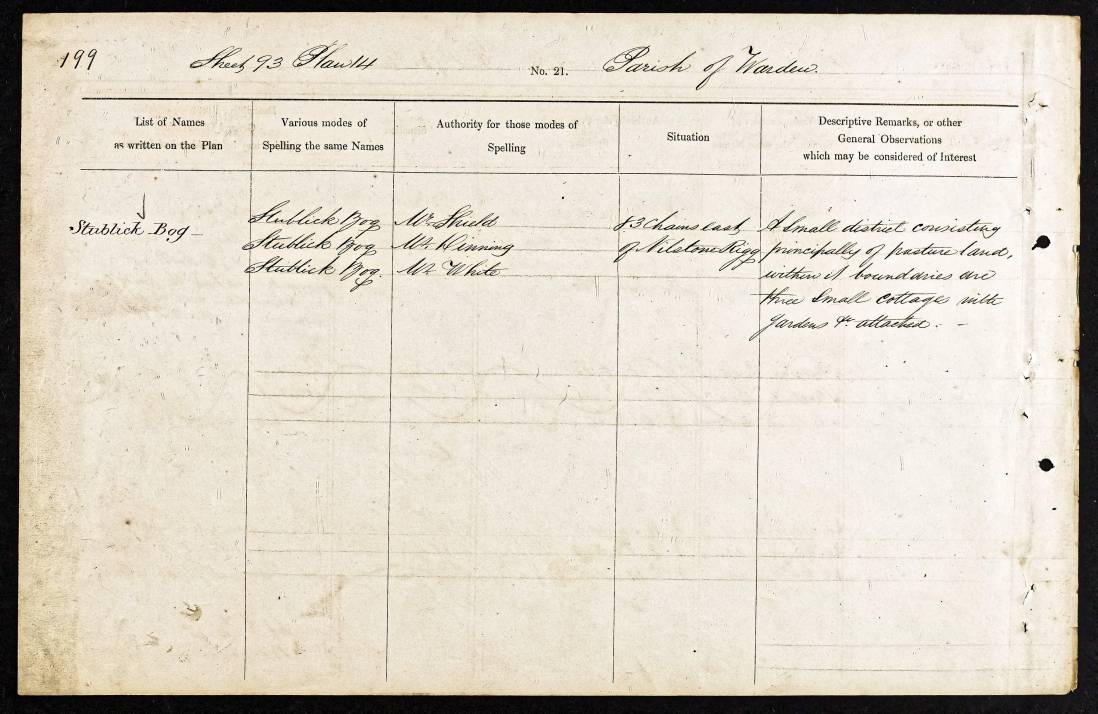 199 Sheet 93 Plan 14 No. 21. Parish of Warden.
List of Names
as written on the Plan
Various modes of
Spelling the same Names
Authority for those modes of
Spelling
Situation
Descriptive Remarks, or other
General Observations
which may be considered of Interest
Stublick Bog
Stublick Bog
Stublick Bog
Stublick Bog.
Mr. Shield
Mr. Dinning
Mr. White
Chains east
of Nilstone Rigg
A Small district consisting
principally of pasture land,
within it boundaries are
three Small cottages with
gardens &c. attached. -